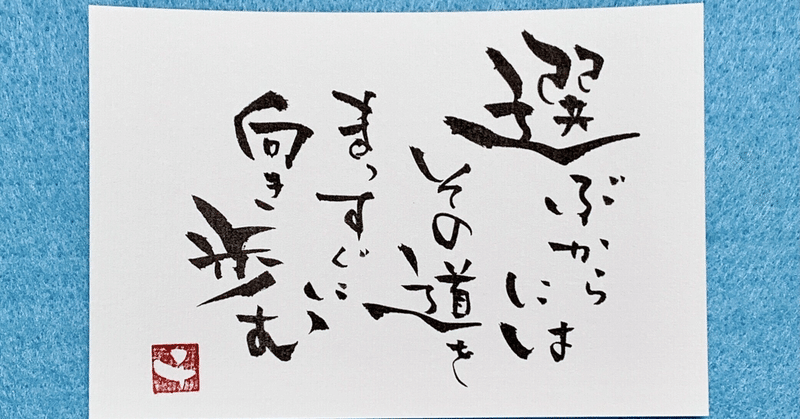 選ぶからには
その道を
まっすぐに
向き歩む